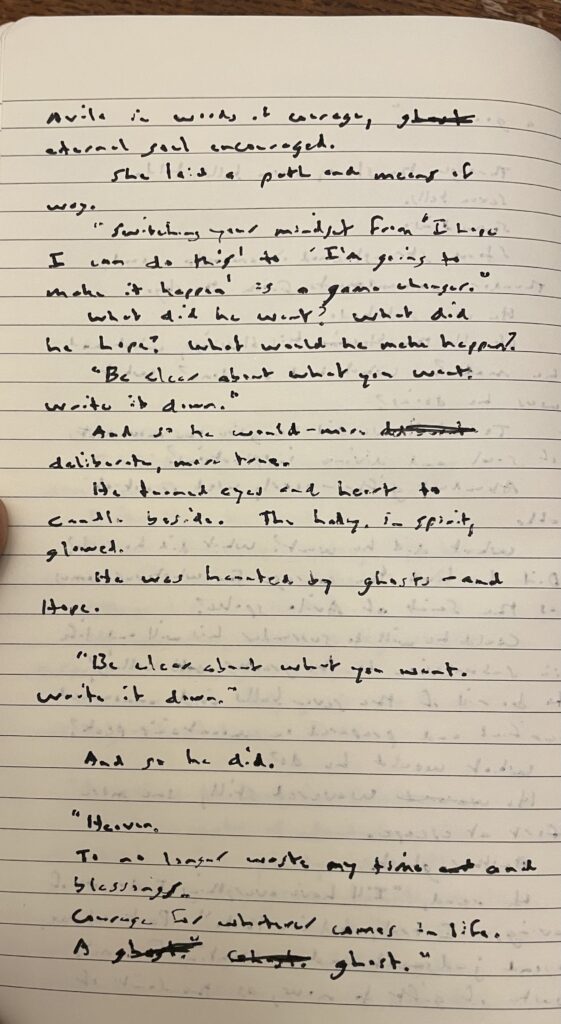 Avila in words of courage,
eternal soul encouraged.
She laid a path and means of
way.
"Switching your mindset from 'I hope
I can do this' to 'I'm going to
make it happen' is a game changer."
What did he want? What did
he hope? What would he make happen?
"Be clear about what you want.
Write it down."
And so he would—more
deliberate, more true.
He turned eyes and heart to
candle beside. The lady, in spirit,
glowed.
He was haunted by ghosts—and
Hope.
"Be clear about what you want.
Write it down."
And so he did.
"Heaven.
To no longer waste my time and
blessings.
Courage for whatever comes in life.
A ghost."